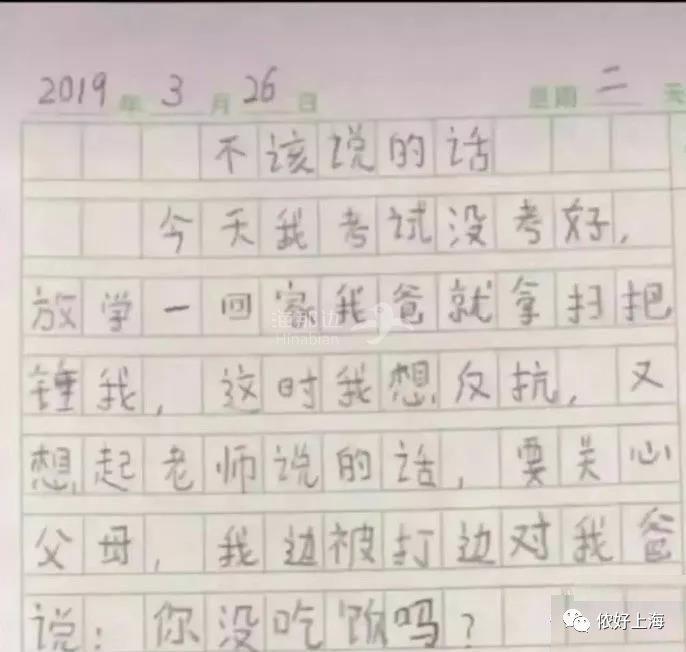 2019年3月26日 星期二 天
不该说的话
今天我考试没考好，
放学一回家我爸就拿扫把
锤我，这时我想反抗，又
想起老师说的话，要关心
父母，我边被打边对我爸
说：你没吃饭吗？
海那边
Hinabian
侬好上海